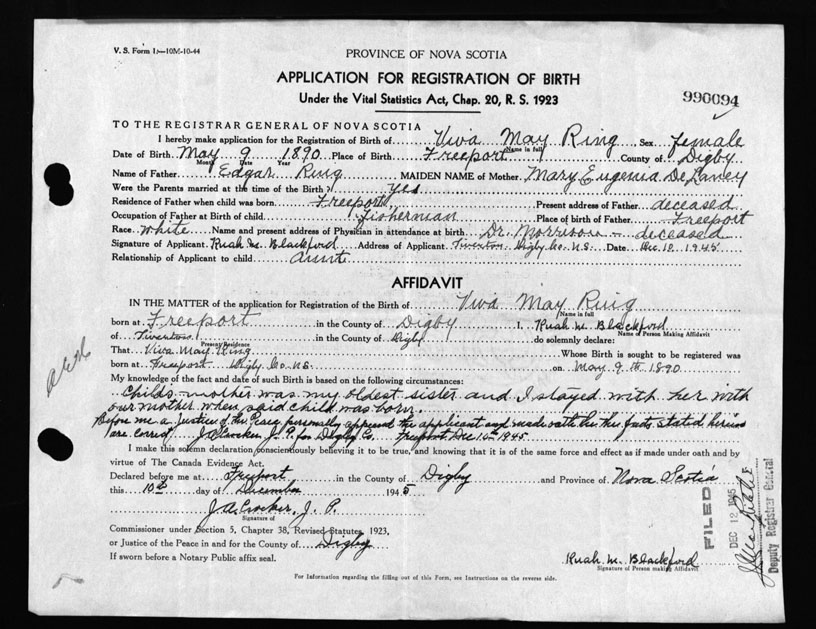 V. S. Form 1—10M-10-44
PROVINCE OF NOVA SCOTIA
APPLICATION FOR REGISTRATION OF BIRTH
Under the Vital Statistics Act, Chap. 20, R. S. 1923
990094
TO THE REGISTRAR GENERAL OF NOVA SCOTIA
I hereby make application for the Registration of Birth of Viva May Ring Sex female
Name in full
Date of Birth May 9 1890 Place of Birth Freeport County of Digby
Month Date Year
Name of Father Edgar Ring MAIDEN NAME of Mother Mary Eugenia DeLaney
Were the Parents married at the time of the Birth? Yes
Residence of Father when child was born Freeport Present address of Father deceased
Occupation of Father at Birth of child fisherman Place of birth of Father Freeport
Race White Name and present address of Physician in attendance at birth Dr. Morrison — deceased
Signature of Applicant Ruah M. Blackford Address of Applicant Tiverton Digby Co. N.S. Date Dec 10 1945
Relationship of Applicant to child aunt
AFFIDAVIT
IN THE MATTER of the application for Registration of the Birth of Viva May Ring
Name in full
born at Freeport in the County of Digby I, Ruah M. Blackford
Name of Person Making Affidavit
of Tiverton in the County of Digby do solemnly declare:
Present Residence
That Viva May Ring Whose Birth is sought to be registered was
born at Freeport Digby Co. N.S. on May 9th 1890
My knowledge of the fact and date of such Birth is based on the following circumstances:
Childs mother was my oldest sister and I stayed with her with
our mother when said child was born.
Before me a Justice of the Peace personally appeared the applicant and made oath the facts stated herein
are correct J. A. Crocker J. P. for Digby Co. Freeport Dec 10th 1945
I make this solemn declaration conscientiously believing it to be true, and knowing that it is of the same force and effect as if made under oath and by
virtue of The Canada Evidence Act.
Declared before me at Freeport in the County of Digby and Province of Nova Scotia
this 10th day of December 1945
J. A. Crocker, J. P.
Signature of
Commissioner under Section 5, Chapter 38, Revised Statutes, 1923,
or Justice of the Peace in and for the County of Digby
If sworn before a Notary Public affix seal.
Ruah M. Blackford
Signature of Person making Affidavit
For Information regarding the filling out of this Form, see Instructions on the reverse side.
FILED
DEC 12 1945
Deputy Registrar General